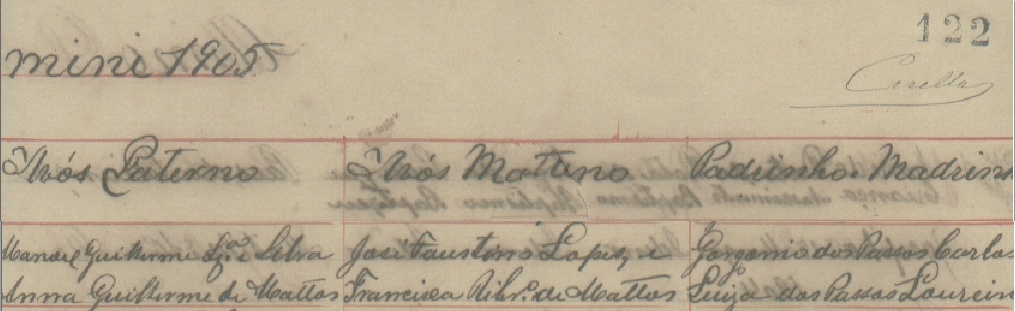 122
mini 1905
Corella
Avós Paterno Avós Matterno Padrinho. Madrinh
Manoel Guilherme e Silva José Faustino Lopes, e Gorgonio dos Passos Carlos
Anna Guilherme de Mattos Francisca Ribrº. de Mattos Luiza dos Passos Loureir